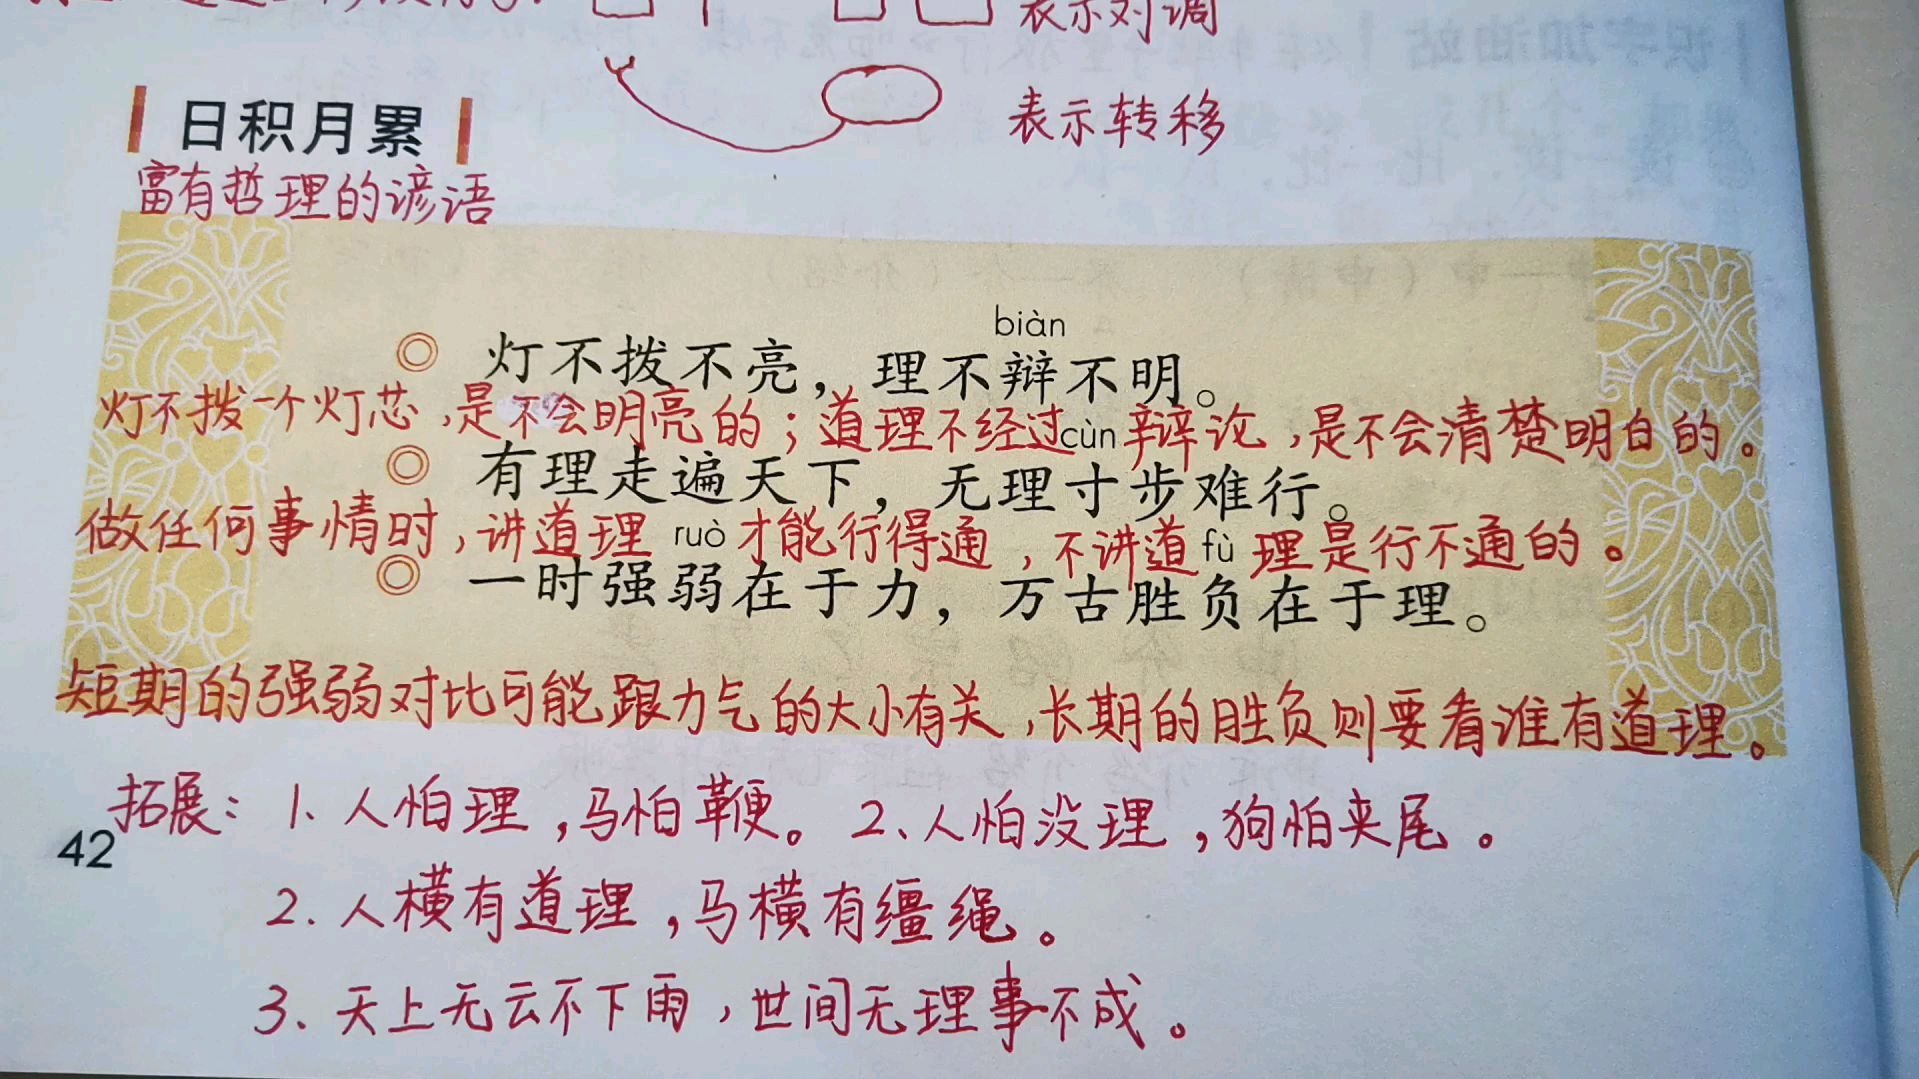 表示对调
表示转移
日积月累
富有哲理的谚语
biàn
灯不拨不亮，理不辩不明。
灯不拨一个灯芯，是不会明亮的；道理不经过辩论，是不会清楚明白的。
cùn
有理走遍天下，无理寸步难行。
做任何事情时，讲道理才能行得通，不讲道理是行不通的。
ruò fù
一时强弱在于力，万古胜负在于理。
短期的强弱对比可能跟力气的大小有关，长期的胜负则要看谁有道理。
拓展：1、人怕理，马怕鞭。2、人怕没理，狗怕夹尾。
42
2. 人横有道理，马横有缰绳。
3、天上无云不下雨，世间无理事不成。